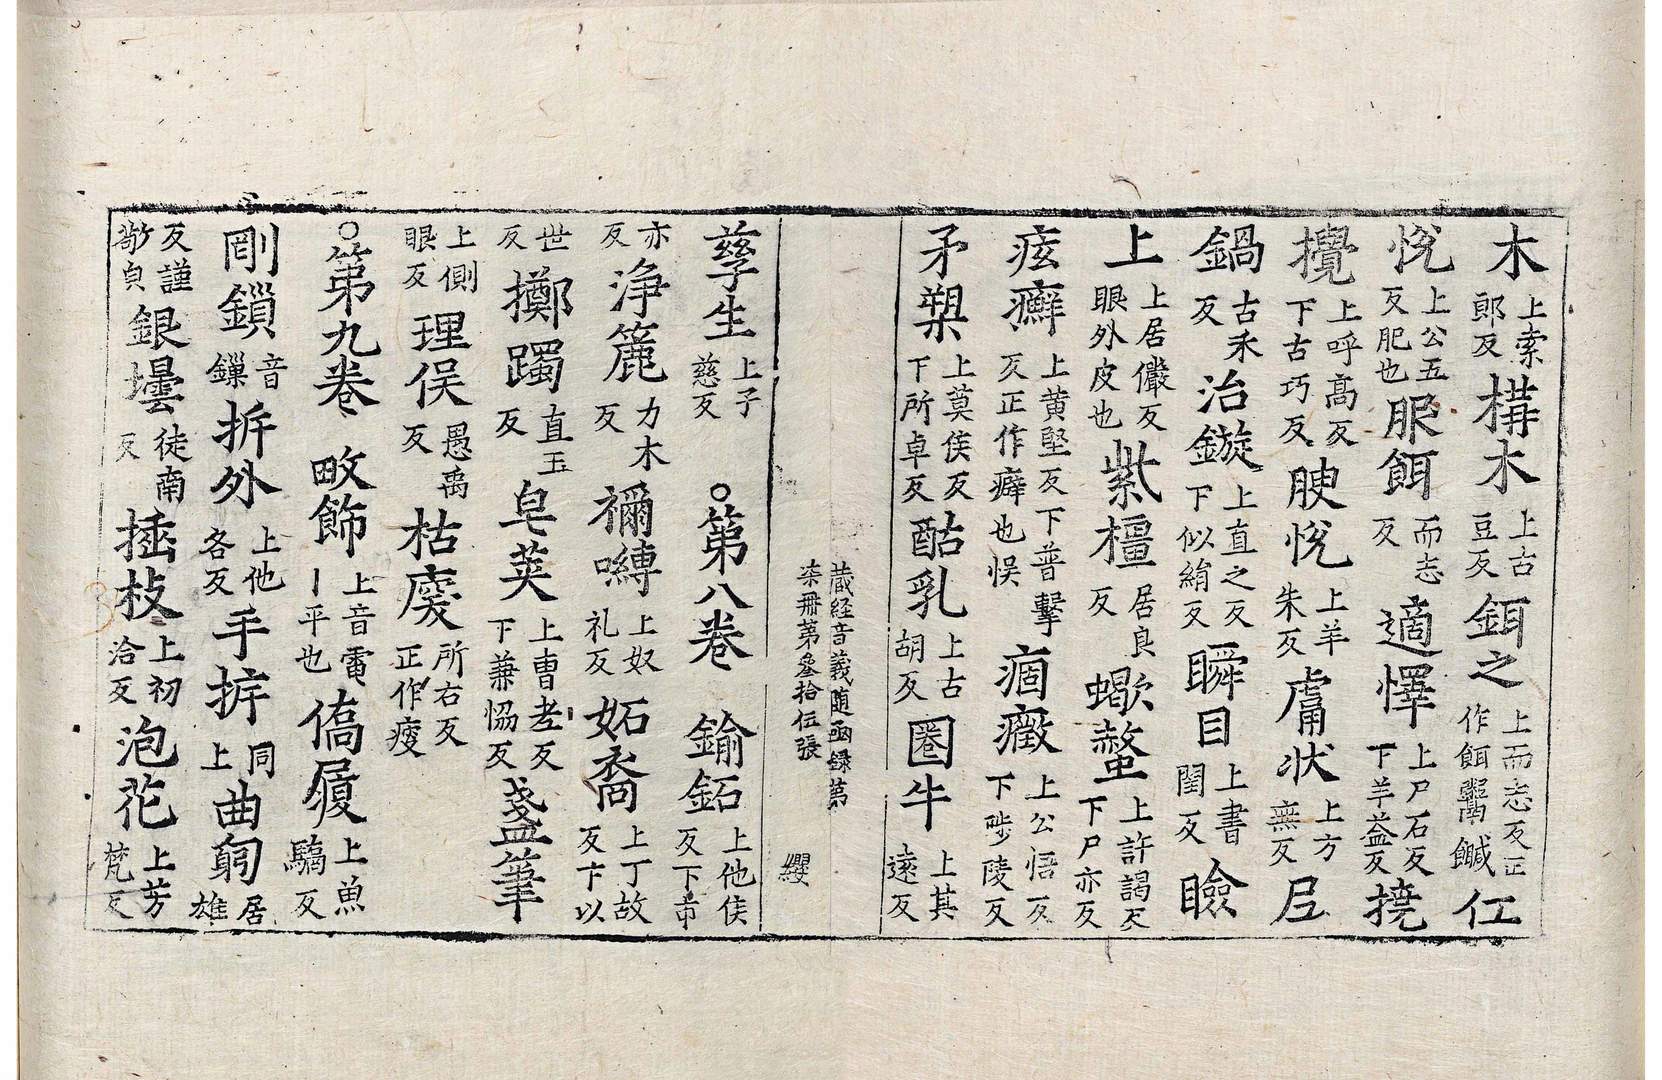 木上索郎反構木上古豆反鉺之上而志反正作餌鬻䶢仁
悅上公五反肥也服餌而志反適懌上尸石反下羊益反撓
攪上呼高反下古巧反腴悅上羊朱反膚状上方無反𡰱
鍋古禾反治鏇上直之反下似絹反瞬目上書閏反瞼
上上居儼反眼外皮也紫橿居良反蠍螫上許謁反下尸亦反
痃癖上黄堅反下普擊反正作癖也悮痼癥上公悟反下陟陵反
矛槊上莫侯反下所卓反酤乳上古胡反圈牛上其遠反
藏經音義随函録第
柒冊第叄拾伍張 纓
孳生上子慈反○第八卷 鍮鉐上他侯反下市
亦反淨簏力木反禰嚩上奴礼反妬裔上丁故反下以
世反擲躅直玉反皂莢上曺孝反下兼恊反盞筆
上側眼反理俁愚禹反枯廋所右反正作瘦
○第九卷 敃飾上音電丨平也僑履上魚驕反
剛鎖音鏁拆外上他各反手拆同上曲躬居雄
反謹敬皃銀壜徒南反插枝上初洽反泡花上芳梵反